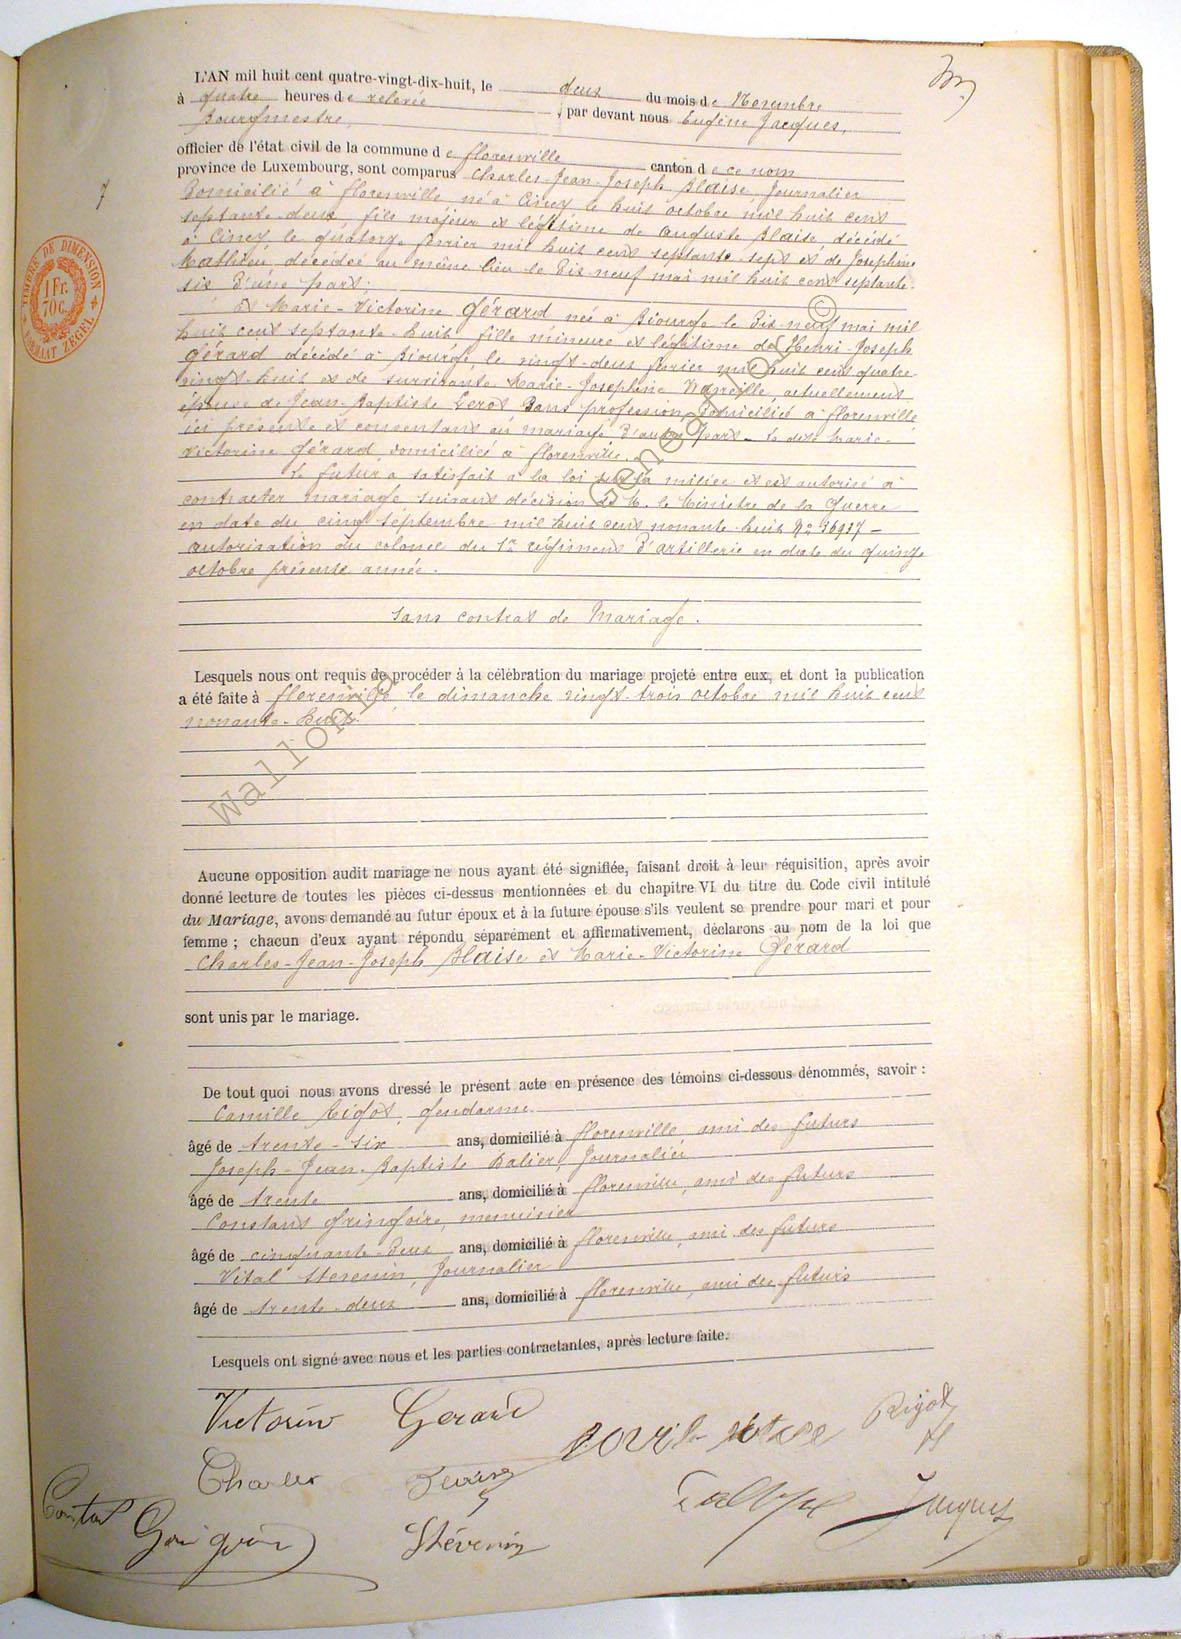 L'AN mil huit cent quatre-vingt-dix-huit, le deux du mois de Novembre
à quatre heures de relevée, par devant nous Eugène Jacques,
Bourgmestre,
officier de l'état civil de la commune de florenville canton de ce nom
province de Luxembourg, sont comparus Charles-Jean-Joseph Blaise, Journalier
Domicilié à florenville né à Ciney le huit octobre mil huit cent
septante-deux, fils majeur et légitime de Auguste Blaise, décédé
à Ciney, le quatorze février mil huit cent septante-sept et de Josephine
Mathieu, décédée au même lieu le dix-neuf mai mil huit cent septante-
six d'une part;
Et Marie-Victorine Gérard née à Biourge le dix-neuf mai mil
huit cent septante-huit fille mineure et légitime de Henri-Joseph
Gérard décédé à Biourge, le vingt-deux février mil huit cent quatre
vingt-huit et de survivante Marie-Josephine actuellement
épouse de Jean-Baptiste Sans profession, domiciliée à florenville
ici présente et consentant au mariage, d'autre part - la dite Marie-
Victorine Gérard domiciliée à florenville.
Le futur a satisfait à la loi sur la milice et est autorisé à
contracter mariage suivant décision de M. le Ministre de la Guerre
en date du cinq septembre mil huit cent nonante-huit No 36937 -
autorisation du colonel du 1r régiment d'artillerie en date du quinze
octobre présente année.
Sans contrat de Mariage.
Lesquels nous ont requis de procéder à la célébration du mariage projeté entre eux, et dont la publication
a été faite à florenville, le dimanche vingt-trois octobre mil huit cent
nonante-huit.
Aucune opposition audit mariage ne nous ayant été signifiée, faisant droit à leur réquisition, après avoir
donné lecture de toutes les pièces ci-dessus mentionnées et du chapitre VI du titre du Code civil intitulé
du Mariage, avons demandé au futur époux et à la future épouse s'ils veulent se prendre pour mari et pour
femme ; chacun d'eux ayant répondu séparément et affirmativement, déclarons au nom de la loi que
Charles-Jean-Joseph Blaise et Marie-Victorine Gérard
sont unis par le mariage.
De tout quoi nous avons dressé le présent acte en présence des témoins ci-dessous dénommés, savoir :
Camille Rigot, gendarme
âgé de trente-six ans, domicilié à florenville ami des futurs
Joseph-Jean-Baptiste Journalier
âgé de trente ans, domicilié à florenville, ami des futurs
Constant Gringoire, menuisier
âgé de cinquante-deux ans, domicilié à florenville, ami des futurs
Vital Stevenin, Journalier
âgé de trente-deux ans, domicilié à florenville, ami des futurs
Lesquels ont signé avec nous et les parties contractantes, après lecture faite.
Victorin Gerard
Rigot
Charles
Jacques
Constant
Stévenin
TIMBRE DE DIMENSION
1 Fr.
70 C.
FORMAAT ZEGEL
Wallonie Genealogy ©